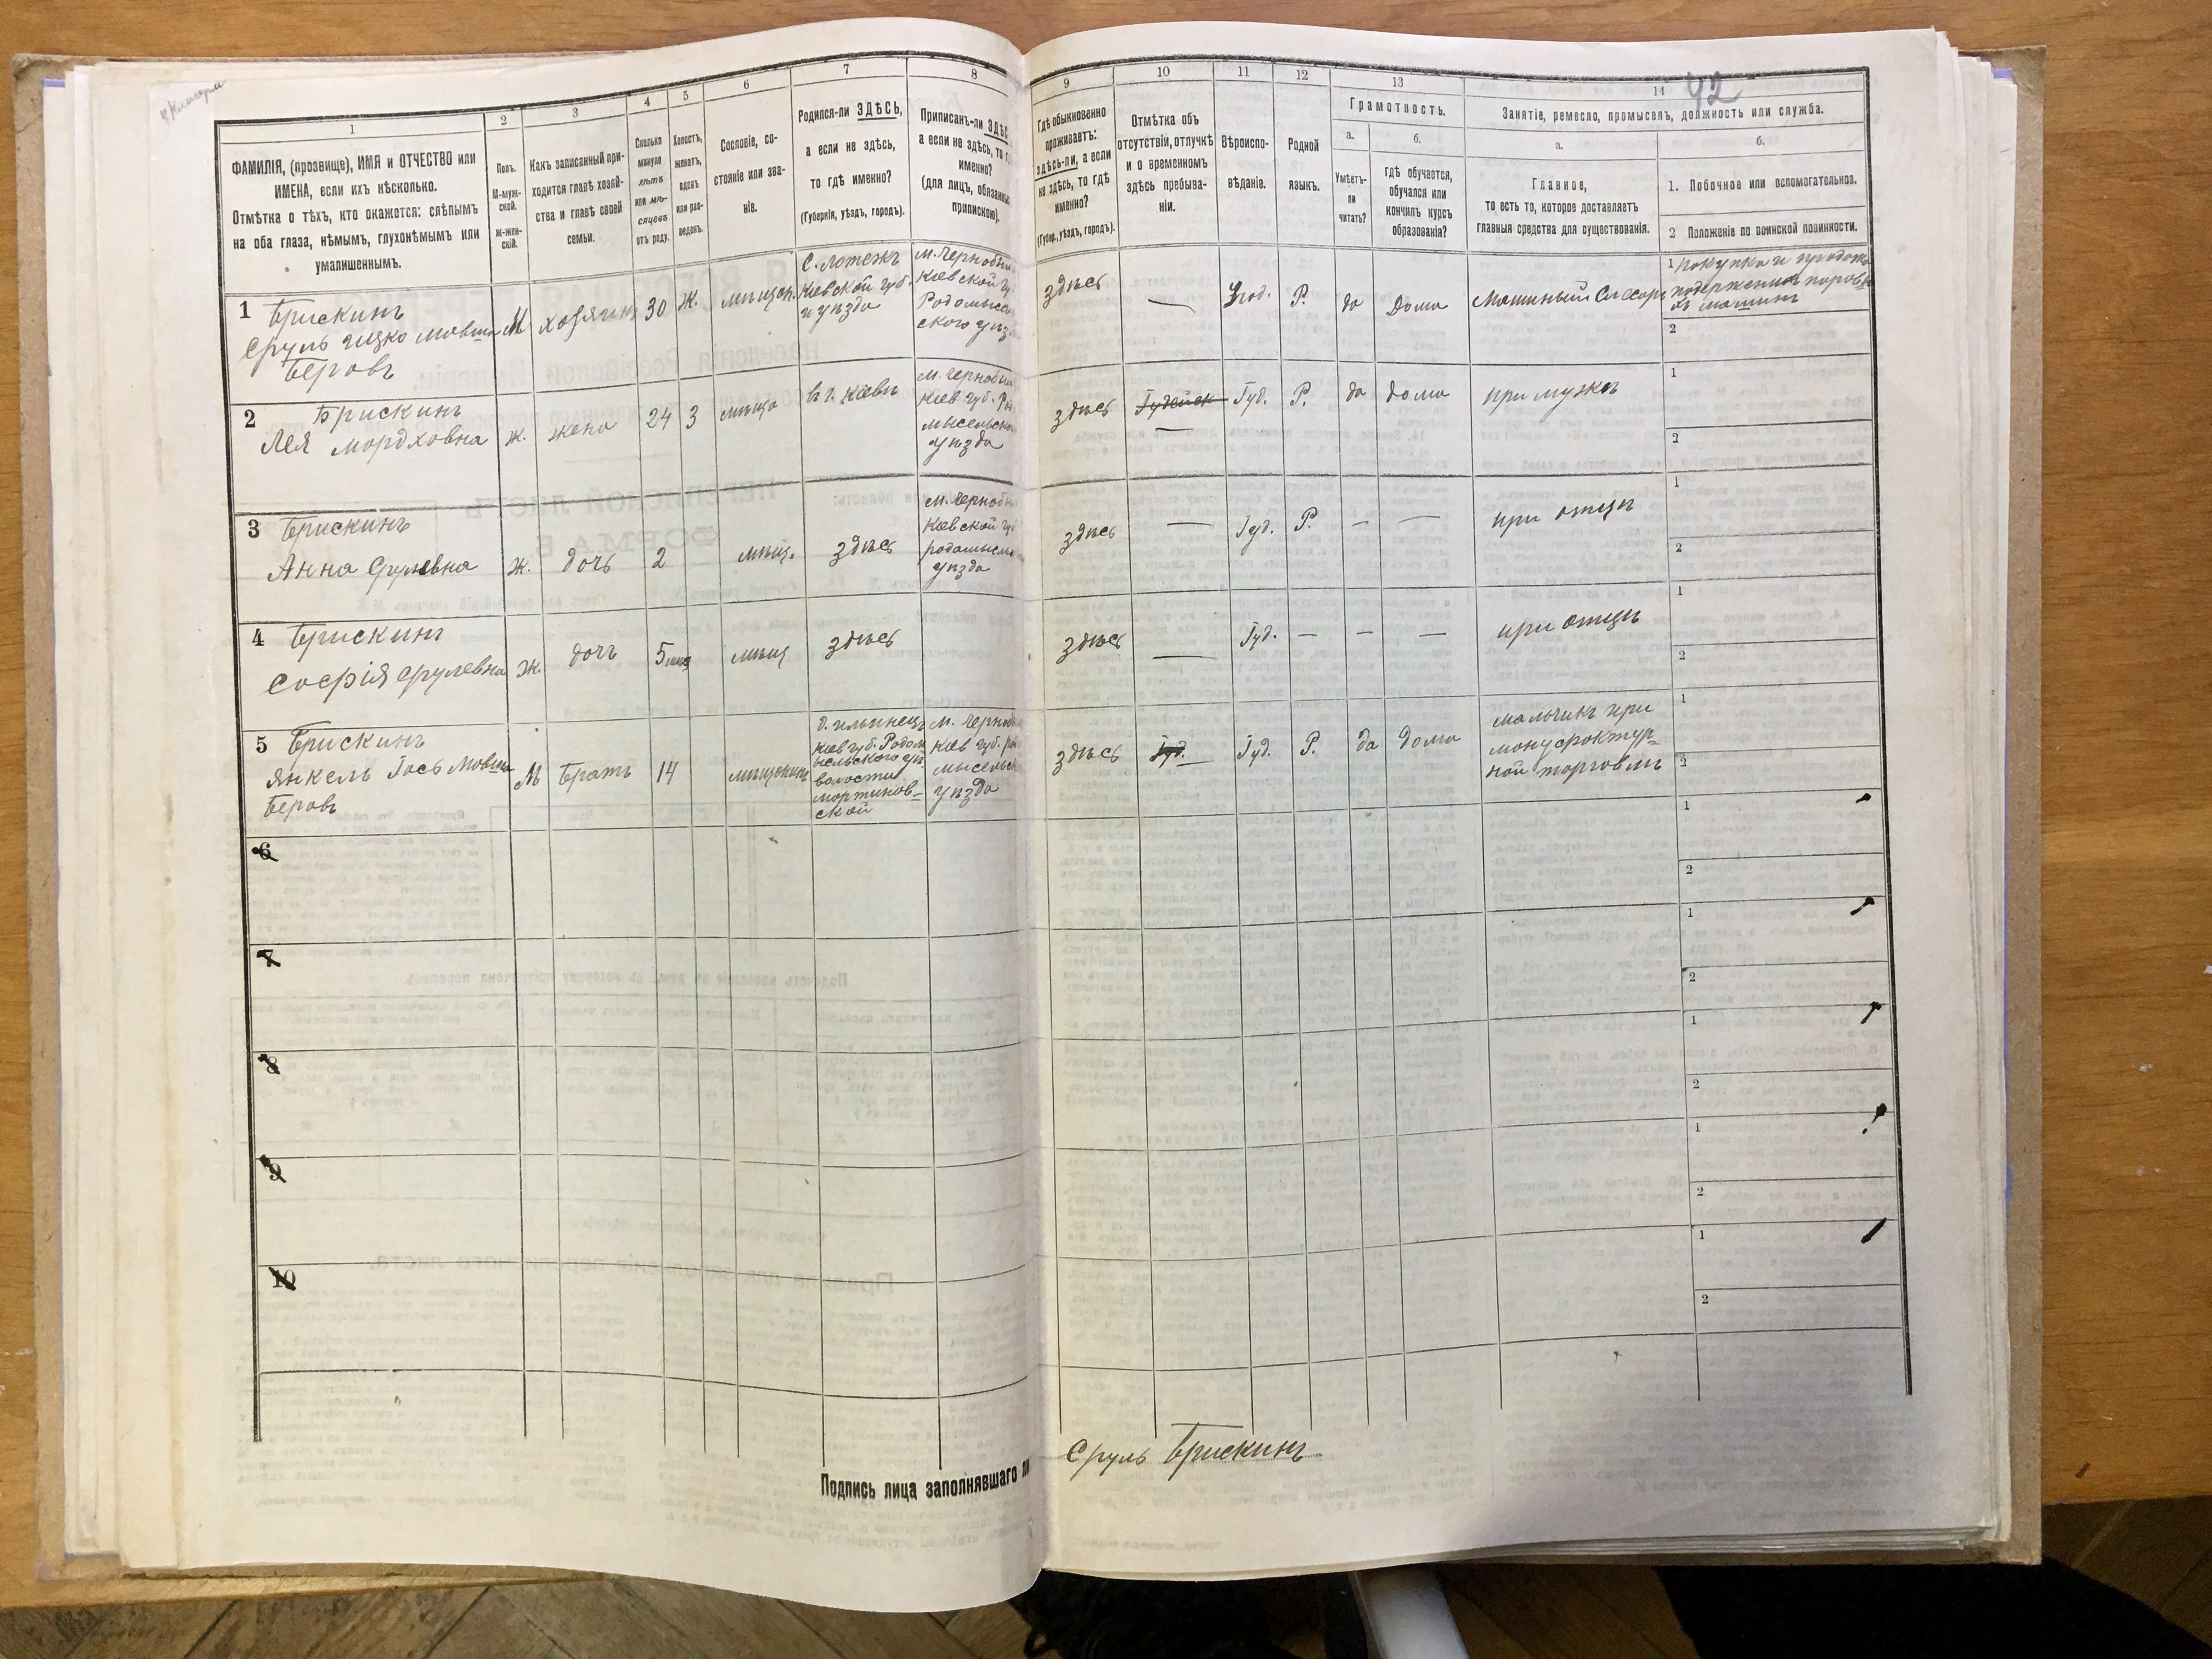 42
1
2
3
4
5
6
7
8
9
10
11
12
13
14
ФАМИЛІЯ, (прозвище), ИМЯ и ОТЧЕСТВО или
ИМЕНА, если ихъ нѣсколько.
Отмѣтка о тѣхъ, кто окажется: слѣпымъ
на оба глаза, нѣмымъ, глухонѣмымъ или
умалишеннымъ.
Полъ.
М-муж-
ской.
Ж-жен-
скій.
Какъ записанный при-
ходится главѣ хозяй-
ства и главѣ своей
семьи.
Сколько
минуло
лѣтъ
или мѣ-
сяцевъ
отъ роду.
Холостъ,
женатъ,
вдовъ
или раз-
веденъ.
Сословіе, со-
стояніе или зва-
ніе.
Родился-ли ЗДѢСЬ,
а если не здѣсь,
то гдѣ именно?
(Губернія, уѣздъ, городъ).
Приписанъ-ли ЗДѢС
а если не здѣсь, то г
именно?
(для лицъ, обязанны
припискою).
Гдѣ обыкновенно
проживаетъ:
здѣсь-ли, а если
не здѣсь, то гдѣ
именно?
(Губер., уѣздъ, городъ).
Отмѣтка объ
отсутствіи, отлучкѣ
и о временномъ
здѣсь пребыва-
ніи.
Вѣроиспо-
вѣданіе.
Родной
языкъ.
Грамотность.
а.
Умѣетъ-
ли
читать?
б.
гдѣ обучается,
обучался или
кончилъ курсъ
образованія?
Занятіе, ремесло, промыселъ, должность или служба.
а.
Главное,
то есть то, которое доставляетъ
главныя средства для существованія.
б.
1. Побочное или вспомогательное.
2 Положеніе по воинской повинности.
1 Брискинъ
Сруль Ицко Мовша
Беровъ
М
хозяинъ
30
Ж.
мѣщан.
Кіевской губ.
и уѣзда
м. Чернобы
Кіевской гу
Радомысл
ского уѣз.
здѣсь
—
Іуд.
Р.
да
Дома
Машиный Слесарь
1 Покупка и продажа
2
2 Брискинъ
Лея Мордховна
ж.
жена
24
З
мѣща
въ г. Кіевѣ
м. Чернобы
Кіев губ. Ра
мысельско
уѣзда
здѣсь
Іудейск
—
Іуд.
Р.
да
дома
при мужѣ
1
2
3 Брискинъ
Анна Срулевна
ж.
дочь
2
мѣщ.
здѣсь
м. Чернобы
Кіевской гу
радомысль
уѣзда
здѣсь
—
Іуд.
Р.
–
—
при отцѣ
1
2
4 Брискинъ
Софія Срулевна
Ж.
дочь
5
мѣщ
здѣсь
здѣсь
—
Іуд.
—
—
—
при отцѣ
1
2
5 Брискинъ
Янкель Іось Мовша
Беровъ
М
братъ
14
мѣщанинъ
д. Ильинецъ
Кіев губ. Радом
ысельского уѣз
волости
мартинов-
ской
м. Черноб
Кіев губ. ра
мысельск
уѣзда
здѣсь
Іуд.
Іуд.
Р.
да
дома
мальчикъ при
мануфактур-
ной торговлѣ
1
2
6
1
2
7
1
2
8
1
2
9
1
2
10
1
2
Подпись лица заполнявшаго ли
Сруль Брискинъ